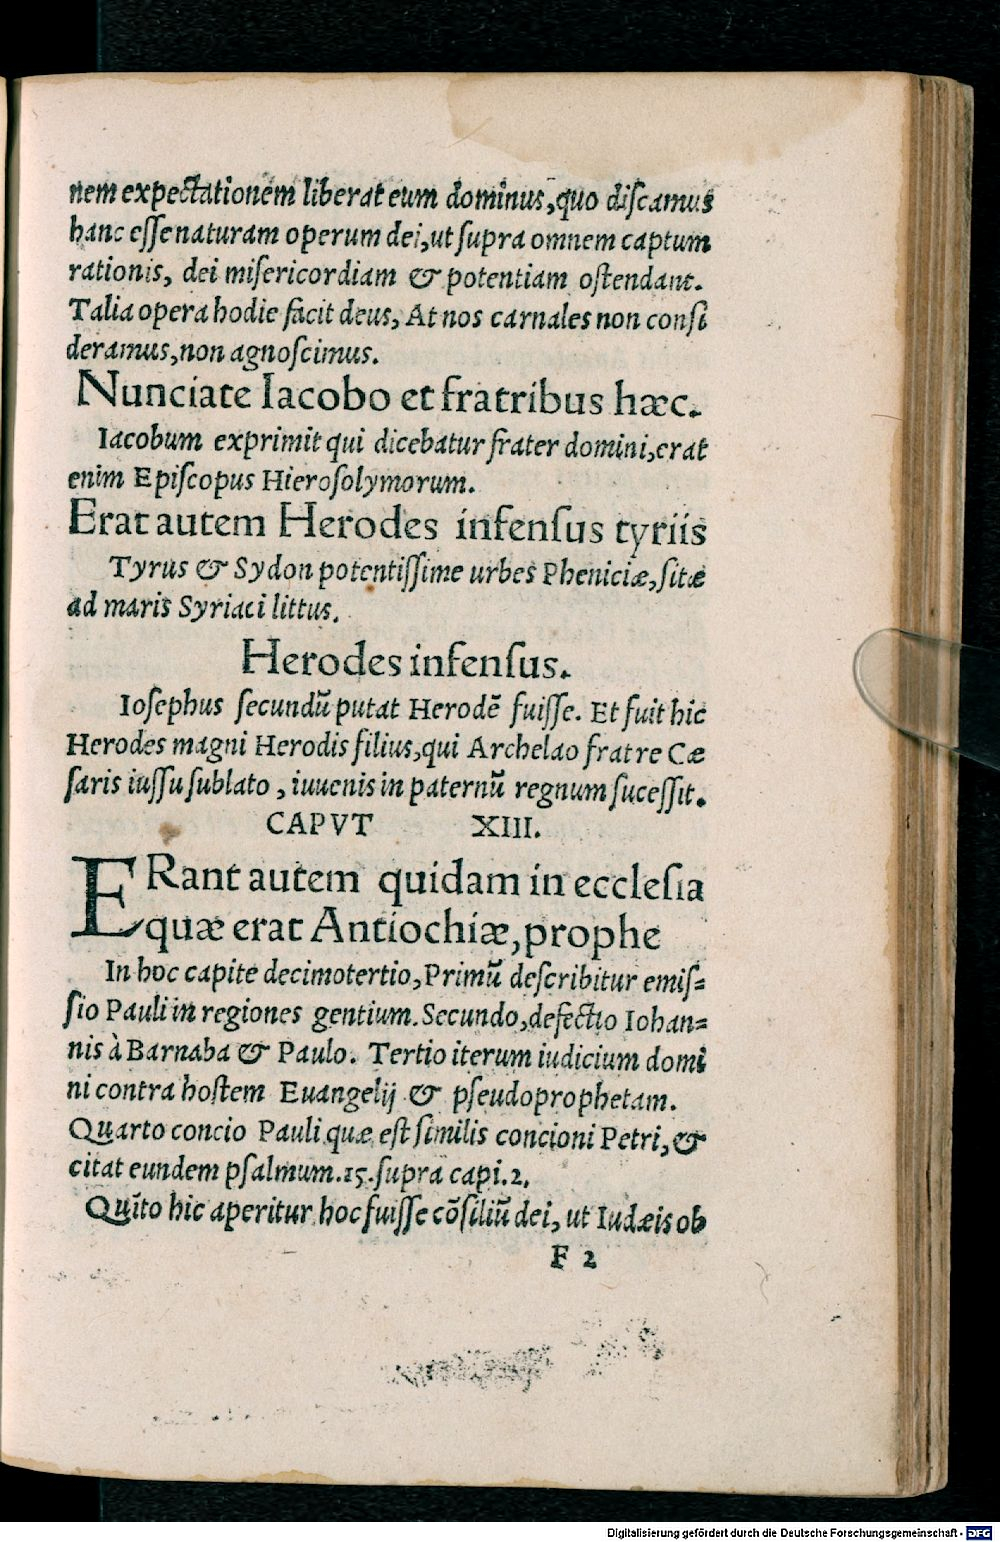 nem expectationem liberat eum dominus, quo discamus
hanc esse naturam operum dei, ut supra omnem captum
rationis, dei misericordiam & potentiam ostendant.
Talia opera hodie facit deus, At nos carnales non consi
deramus, non agnoscimus.
Nunciate Iacobo et fratribus hæc.
Iacobum exprimit qui dicebatur frater domini, erat
enim Episcopus Hierosolymorum.
Erat autem Herodes infensus tyriis
Tyrus & Sydon potentissime urbes Pheniciæ, sitæ
ad maris Syriaci littus.
Herodes infensus.
Iosephus secundū putat Herodē fuisse. Et fuit hic
Herodes magni Herodis filius, qui Archelao fratre Cæ
saris iussu sublato, iuuenis in paternū regnum sucessit.
CAPVT XIII.
ERant autem quidam in ecclesia
quæ erat Antiochiæ, prophe
In hoc capite decimotertio, Primū describitur emis⸗
sio Pauli in regiones gentium. Secundo, defectio Iohan⸗
nis à Barnaba & Paulo. Tertio iterum iudicium domi
ni contra hostem Euangelij & pseudoprophetam.
Quarto concio Pauli quæ est similis concioni Petri, &
citat eundem psalmum. 15. supra capi. 2.
Quīto hic aperitur hoc fuisse cōsiliū dei, ut Iudæis ob
F 2
Digitalisierung gefördert durch die Deutsche Forschungsgemeinschaft - DFG